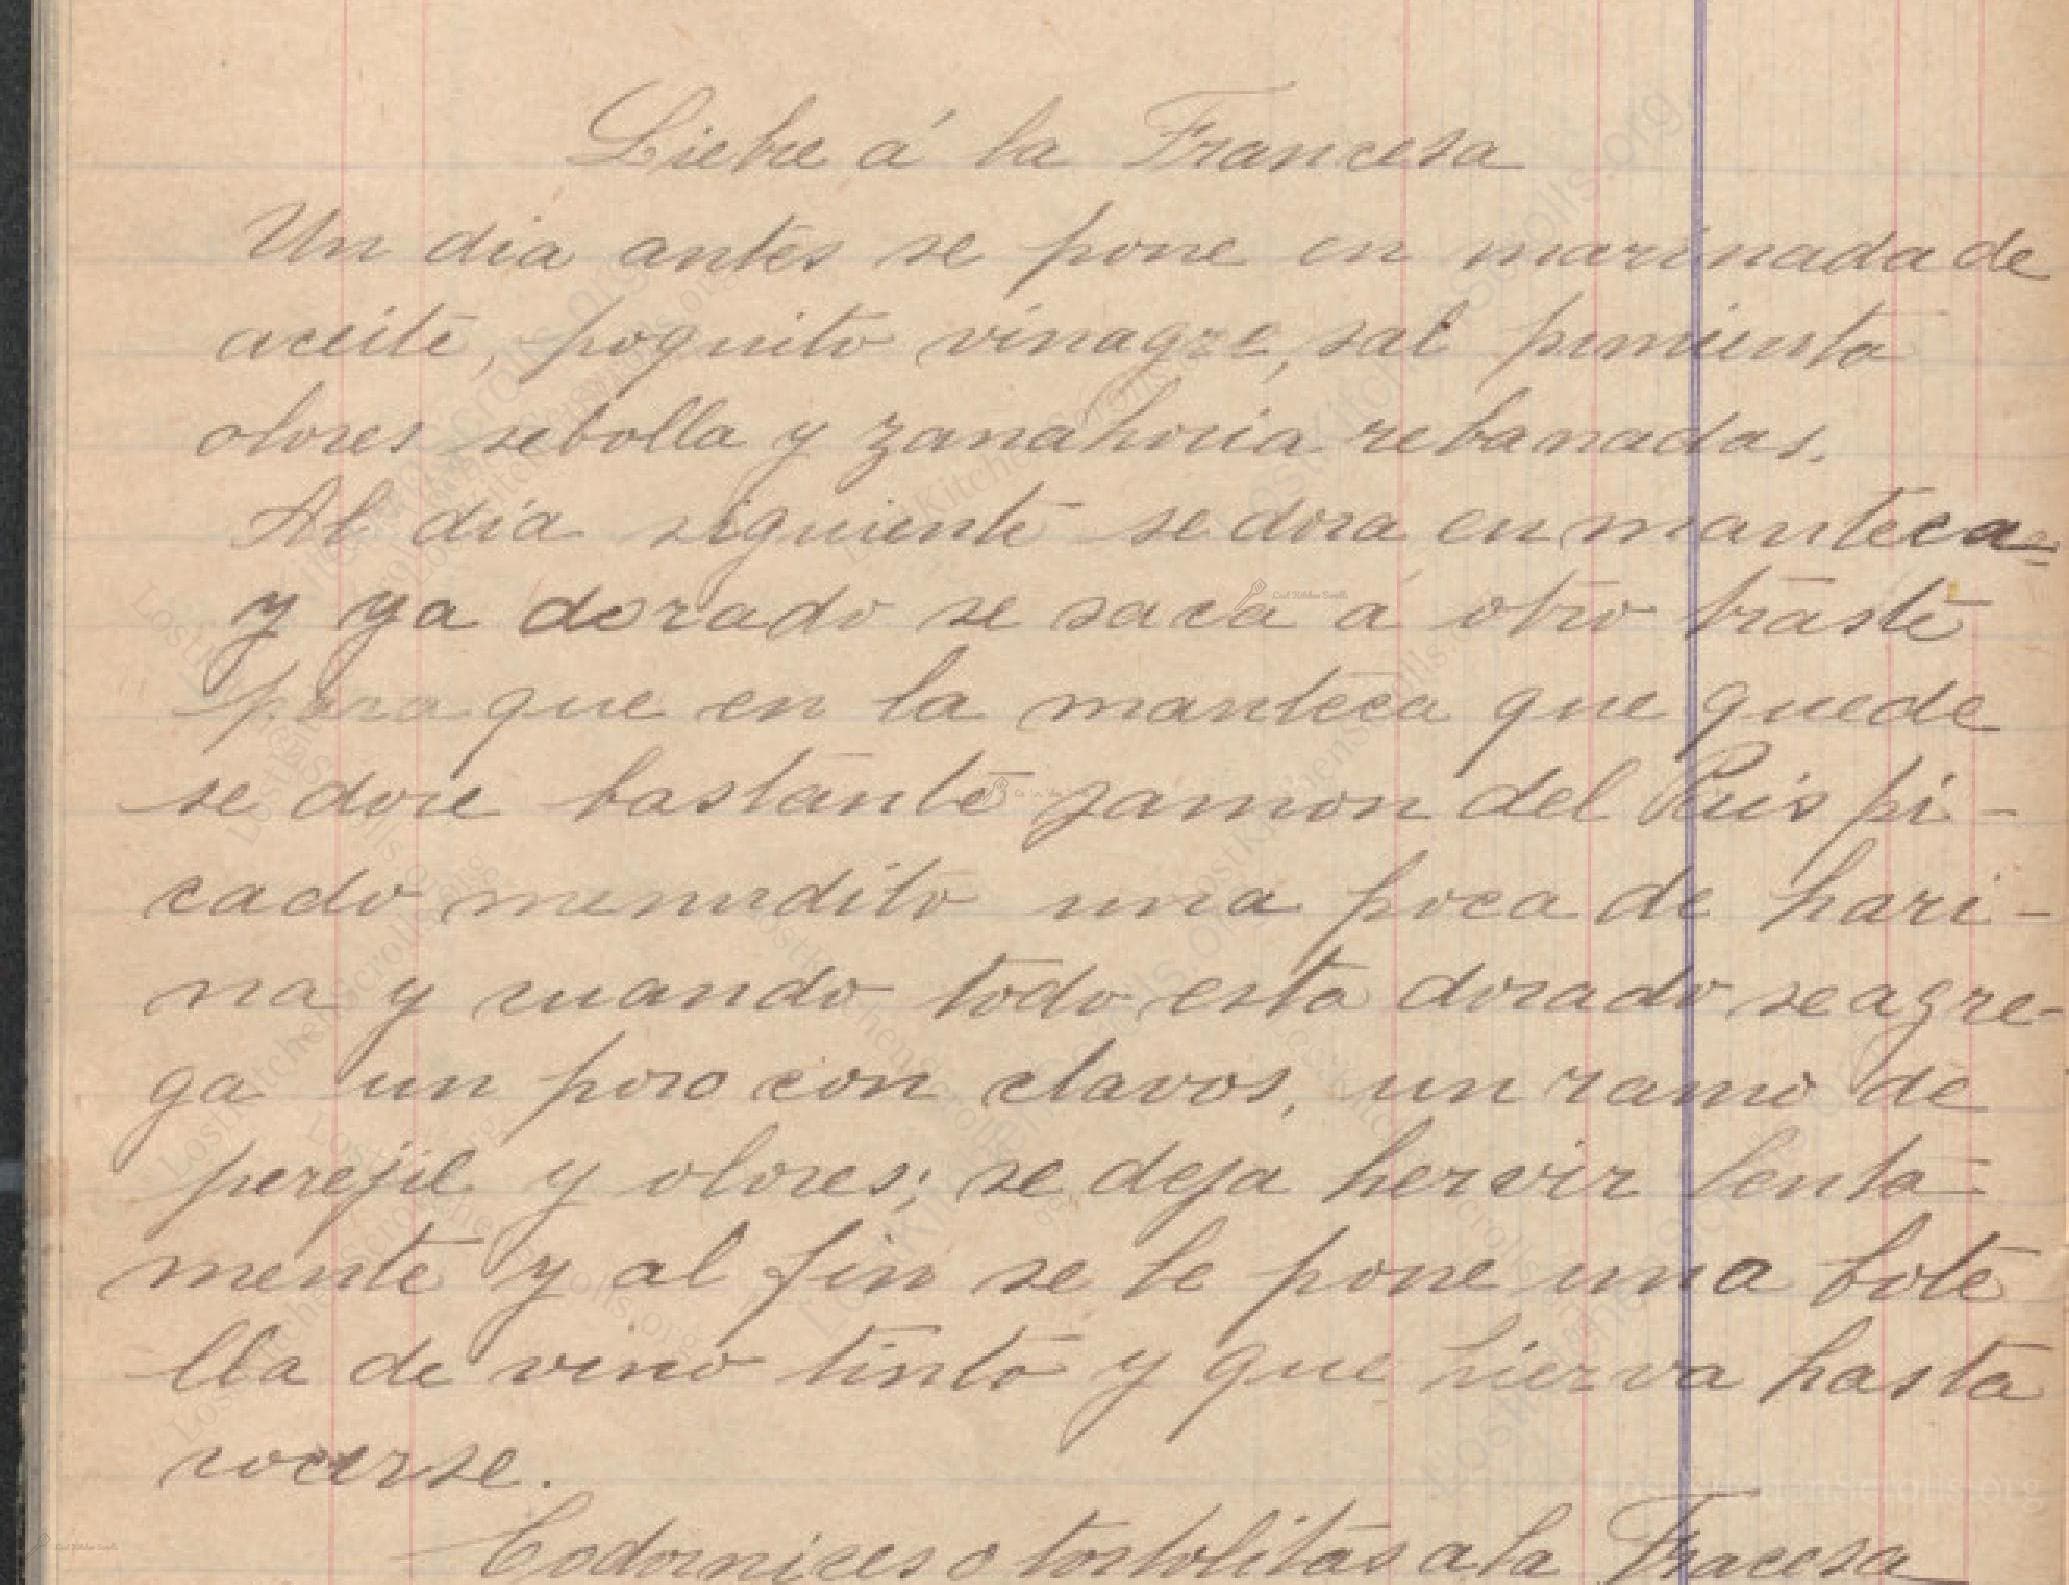 Liebre á la Francesa
Un dia antes se pone en marinada de
aceite, poquito vinagre, sal pimienta
olores sebolla y zanahoria rebanadas.
Al dia siguiente se dora en manteca
y ya dorado se saca á otro traste
para que en la manteca que quede
se dore bastante jamon del Pais pi-
cado menudito una poca de hari-
na y cuando todo esta dorado se agre-
ga un poro con clavos, un ramo de
perejil y olores; se deja hervir lenta-
mente y al fin se le pone una bote
lla de vino tinto y que hierva hasta
cocerse.
LostKitchenScrolls.org
Codornices o tortolitas a la Fracesa